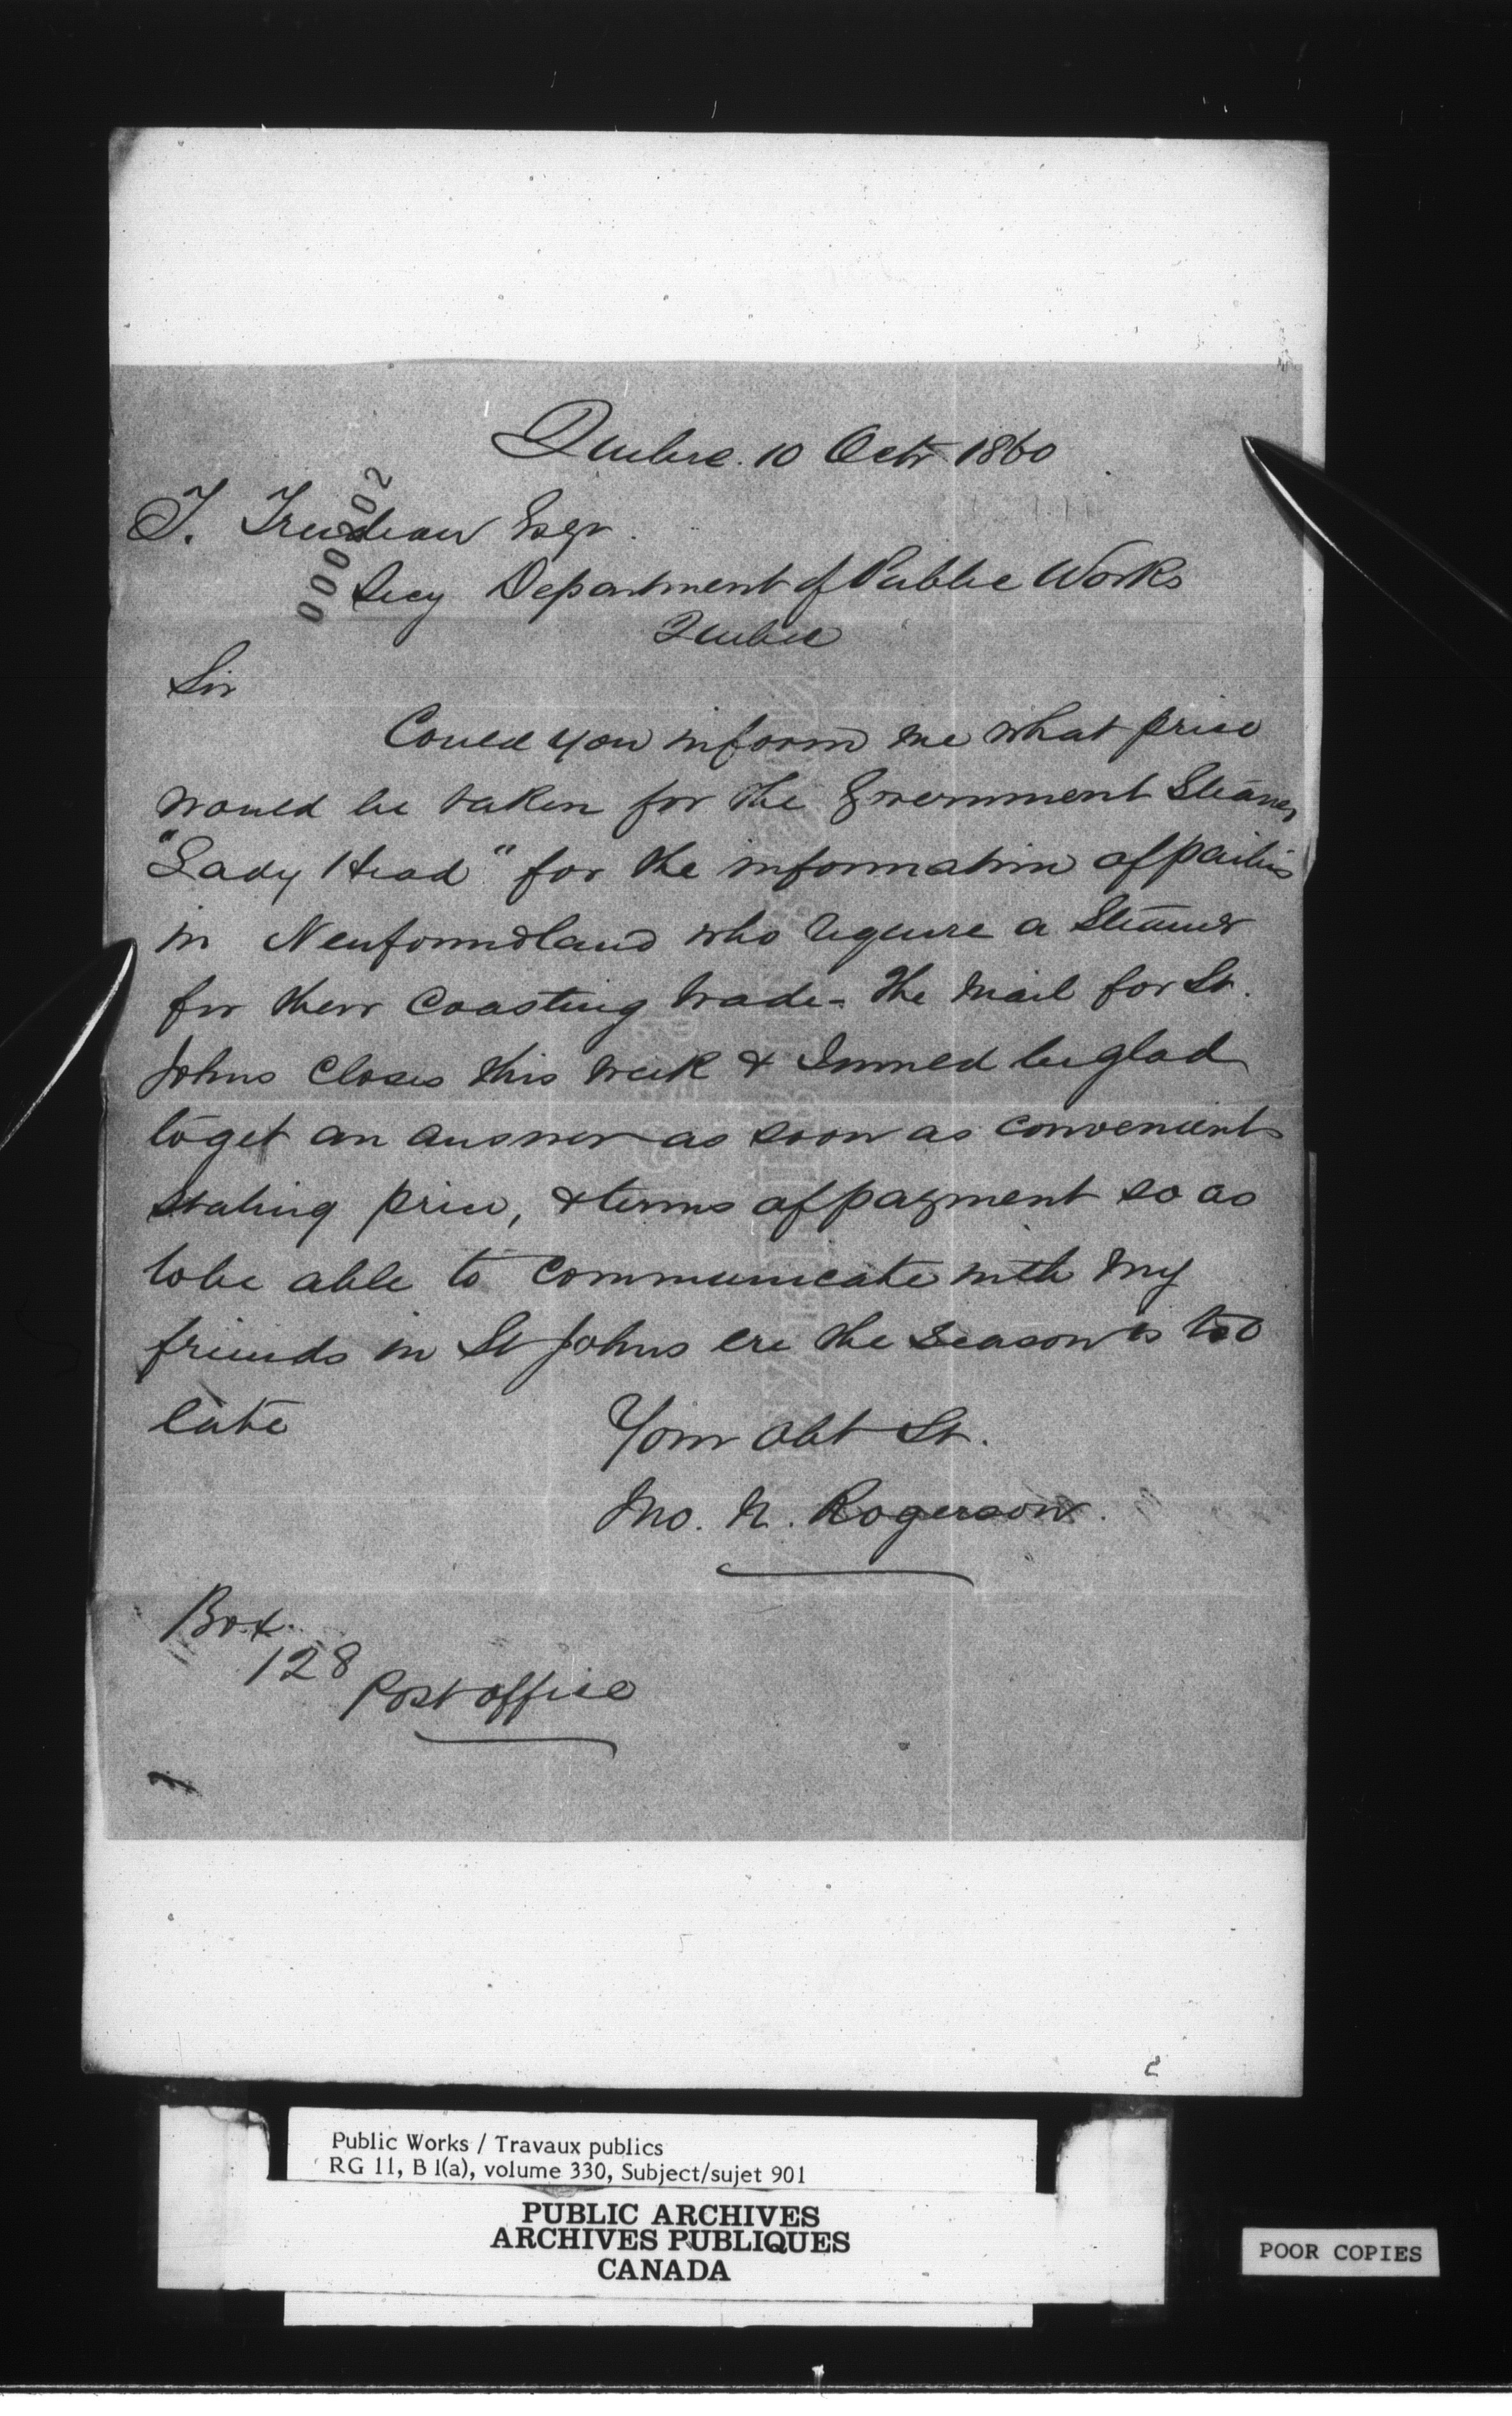 Quebec. 10 Octr 1860
000002
T. Trudeau Esqr.
Secy Department of Public Works
Quebec
Sir
Could you inform me what price
would be taken for the Government Steamer
"Lady Head" for the information of parties
in Newfoundland who require a Steamer
for their Coasting trade - The Mail for St.
Johns Closes this week & I would be glad
to get an answer as soon as convenient
stating price, & terms of payment so as
to be able to communicate with my
friends in St Johns ere the season is too
late
Your Obt St.
Jno. N. Rogerson.
Box
128
Post office
2
Public Works / Travaux publics
RG 11, B 1(a), volume 330, Subject/sujet 901
PUBLIC ARCHIVES
ARCHIVES PUBLIQUES
CANADA
POOR COPIES